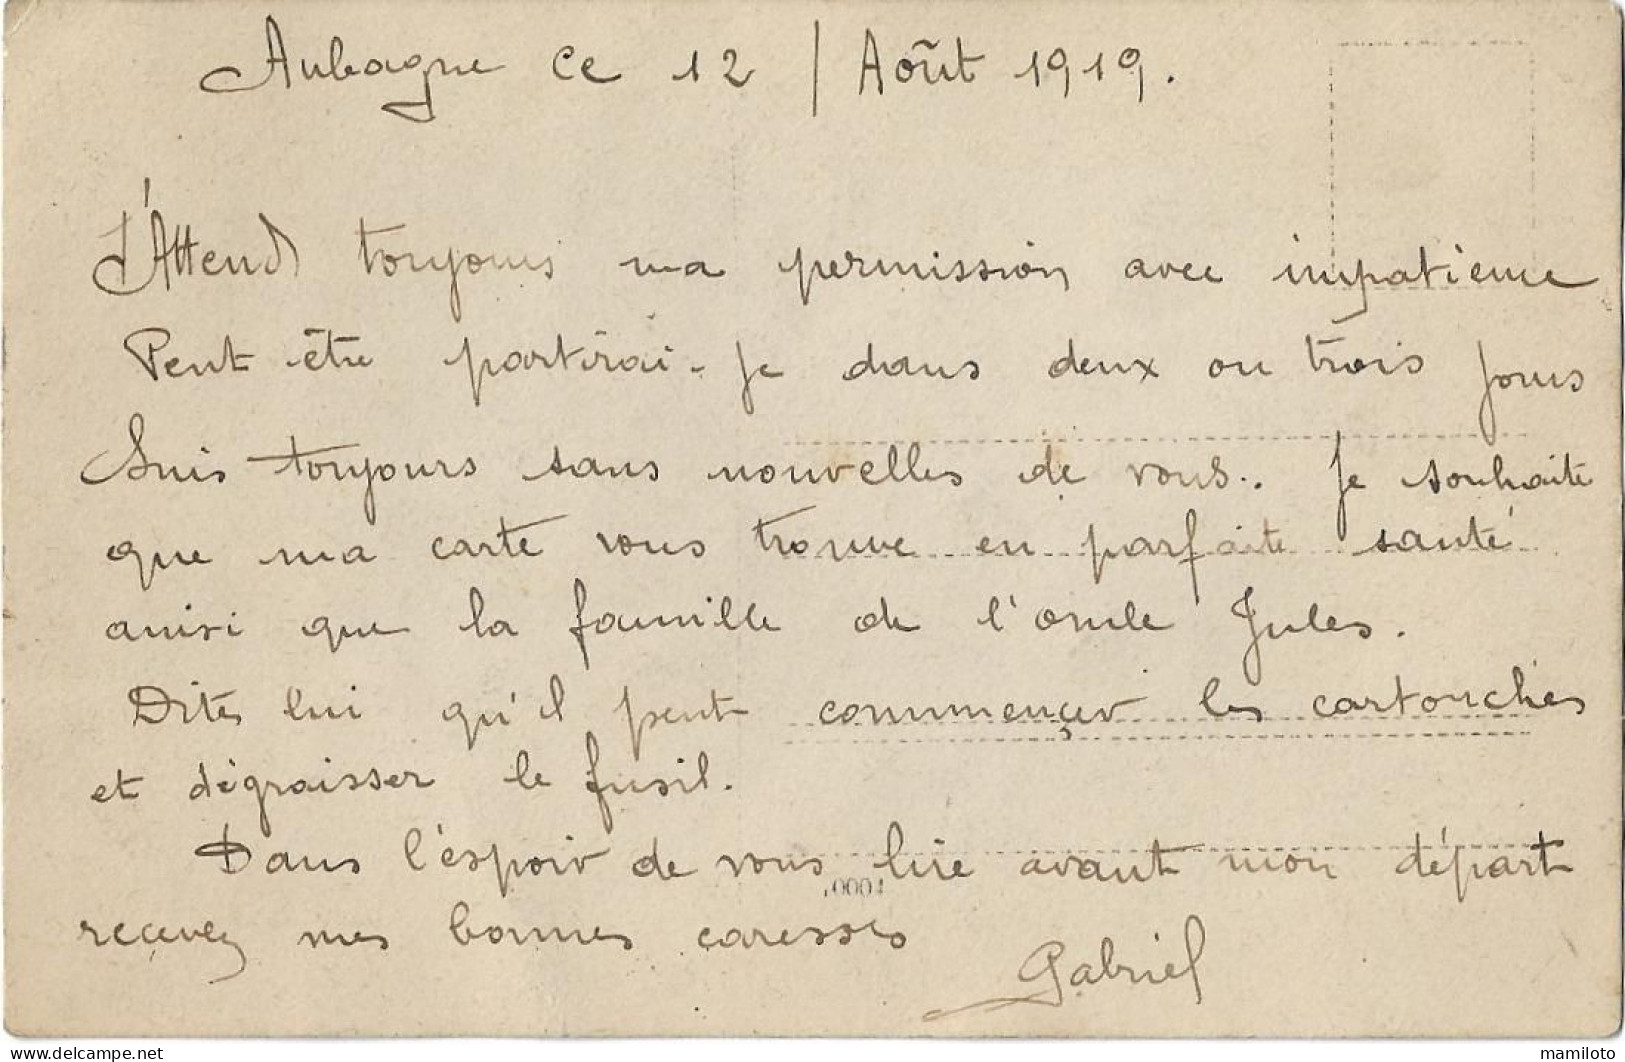 Aubagne ce 12 / Août 1919.
J'Attends toujours ma permission avec impatience
Peut être partirai-je dans deux ou trois jours
Suis toujours sans nouvelles de vous.. Je souhaite
que ma carte vous trouve en parfaite santé
ainsi que la famille de l'oncle Jules.
Dites lui qu'il peut commençer les cartouches
et dégraisser le fusil.
Dans l'éspoir de vous lire avant mon départ
reçevez mes bonnes caresses
Gabriel
mamiloto